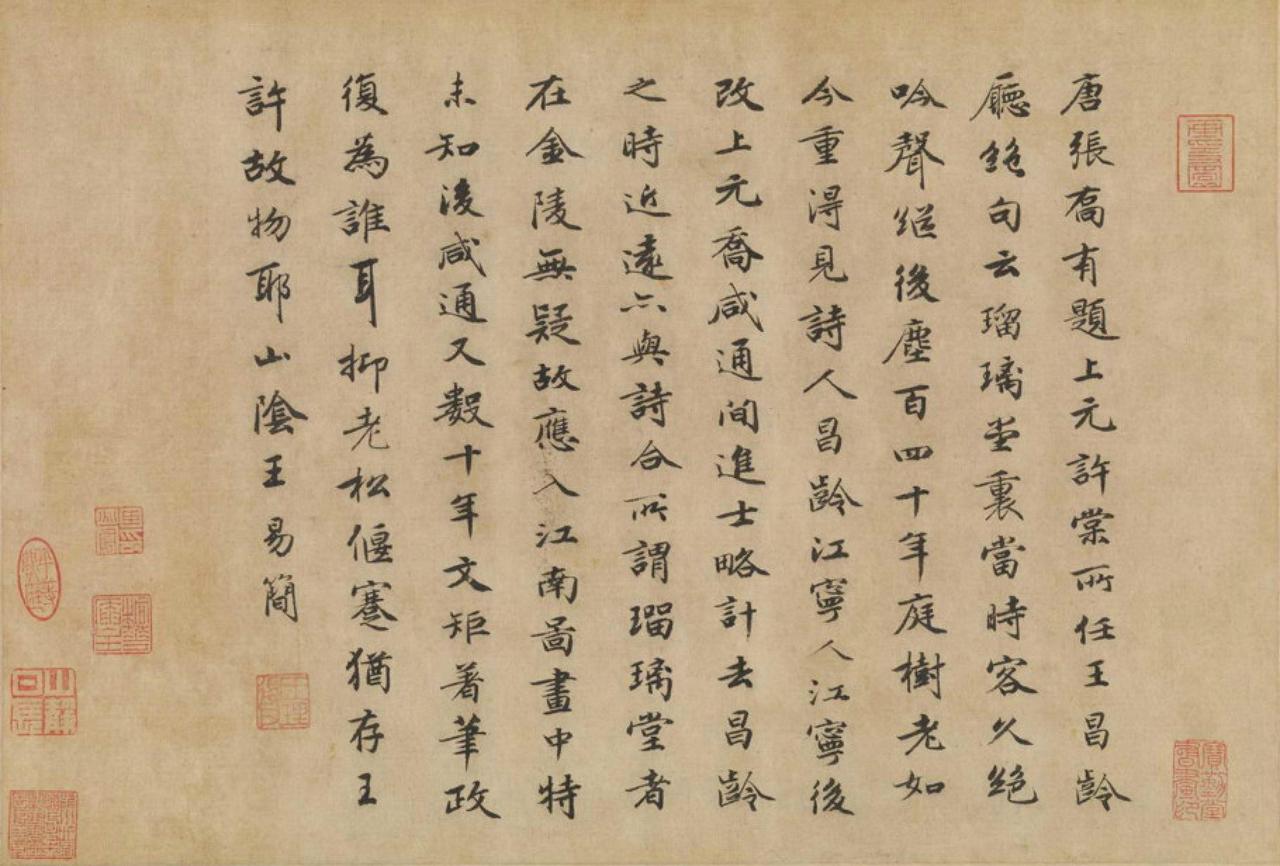 唐張喬有題上元許棠所任王昌齡
廳絕句云瑠璃堂裏當時客久絕
吟聲继後塵百四十年庭樹老如
今重淂見詩人昌齡江寧人江寧後
改上元喬咸通间進士略計去昌齡
之時近遠亦與詩合所謂瑠璃堂者
在金陵無疑故應入江南啚畫中特
未知後咸通又數十年文矩著筆政
復為誰耳抑老松偃蹇猶存王
許故物耶山陰王易簡